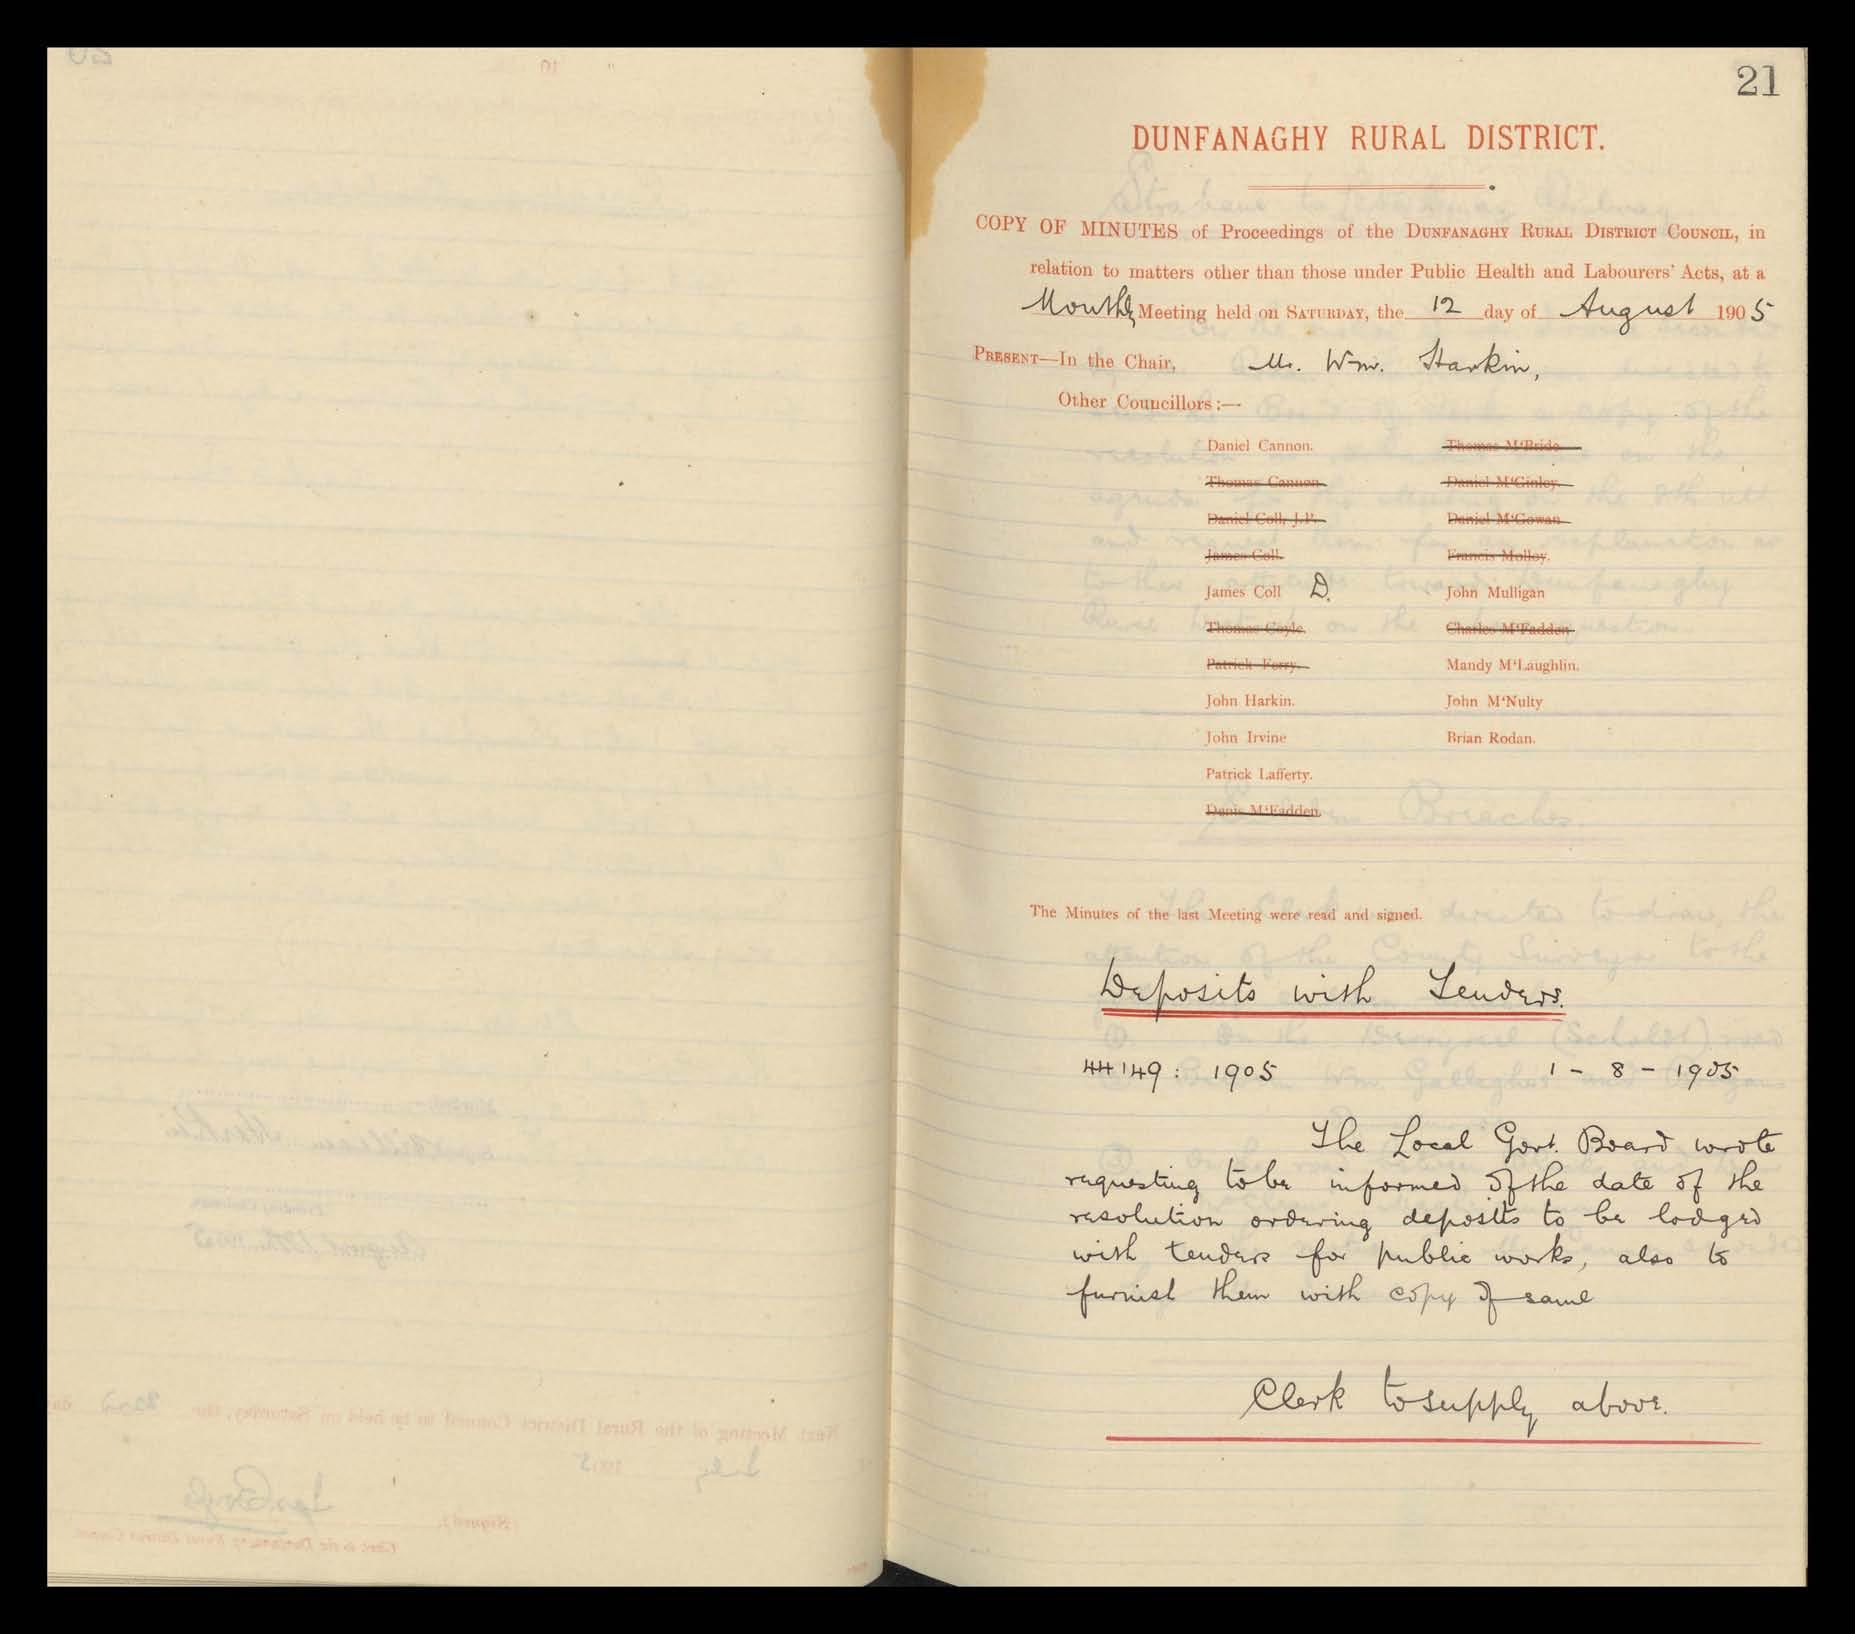 21
DUNFANAGHY RURAL DISTRICT.
COPY OF MINUTES of Proceedings of the DUNFANAGHY RURAL DISTRICT COUNCIL, in
relation to matters other than those under Public Health and Labourers' Acts, at a
Monthly Meeting held on SATURDAY, the 12 day of August 1905
PRESENT—In the Chair, Mr. Wm. Harkin,
Other Councillors:—
Daniel Cannon. Thomas M'Bride
Thomas Cannon. Daniel M'Ginley.
Daniel Coll, J.P. Daniel M'Gowan
James Coll. Francis Molloy.
James Coll D. John Mulligan
Thomas Coyle. Charles M'Fadden
Patrick Ferry. Mandy M'Laughlin.
John Harkin. John M'Nulty
John Irvine Brian Rodan.
Patrick Lafferty.
Denis M'Fadden.
The Minutes of the last Meeting were read and signed.
Deposits with Tenders.
44149: 1905 1 - 8 - 1905
The Local Govt. Board wrote
requesting to be informed of the date of the
resolution ordering deposits to be lodged
with tenders for public works, also to
furnish them with copy of same
Clerk to supply above.